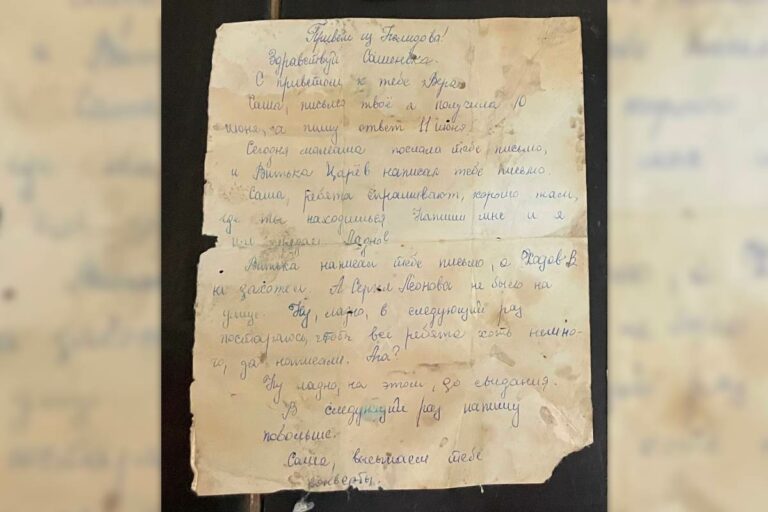 Привет из Нелидова!
Здравствуй Сашенька.
С приветом к тебе Вера.
Саша, письмо твоё я получила 10
июня, а пишу ответ 11 июня.
Сегодня мамаша послала тебе письмо,
и Витька Царёв написал тебе письмо.
Саша, ребята спрашивают, хорошо там,
где ты находишься. Напиши мне и я
им передам. Ладно
Витька написал тебе письмо, а В
не захотел. А Сергея Леонова не было на
улице. Ну, ладно, в следующий раз
постараюсь, чтобы все ребята хоть немно-
го, да написали. Ага?
Ну ладно, на этом, до свидания.
В следующий раз напишу
побольше.
Саша, высылаем тебе
конверты.